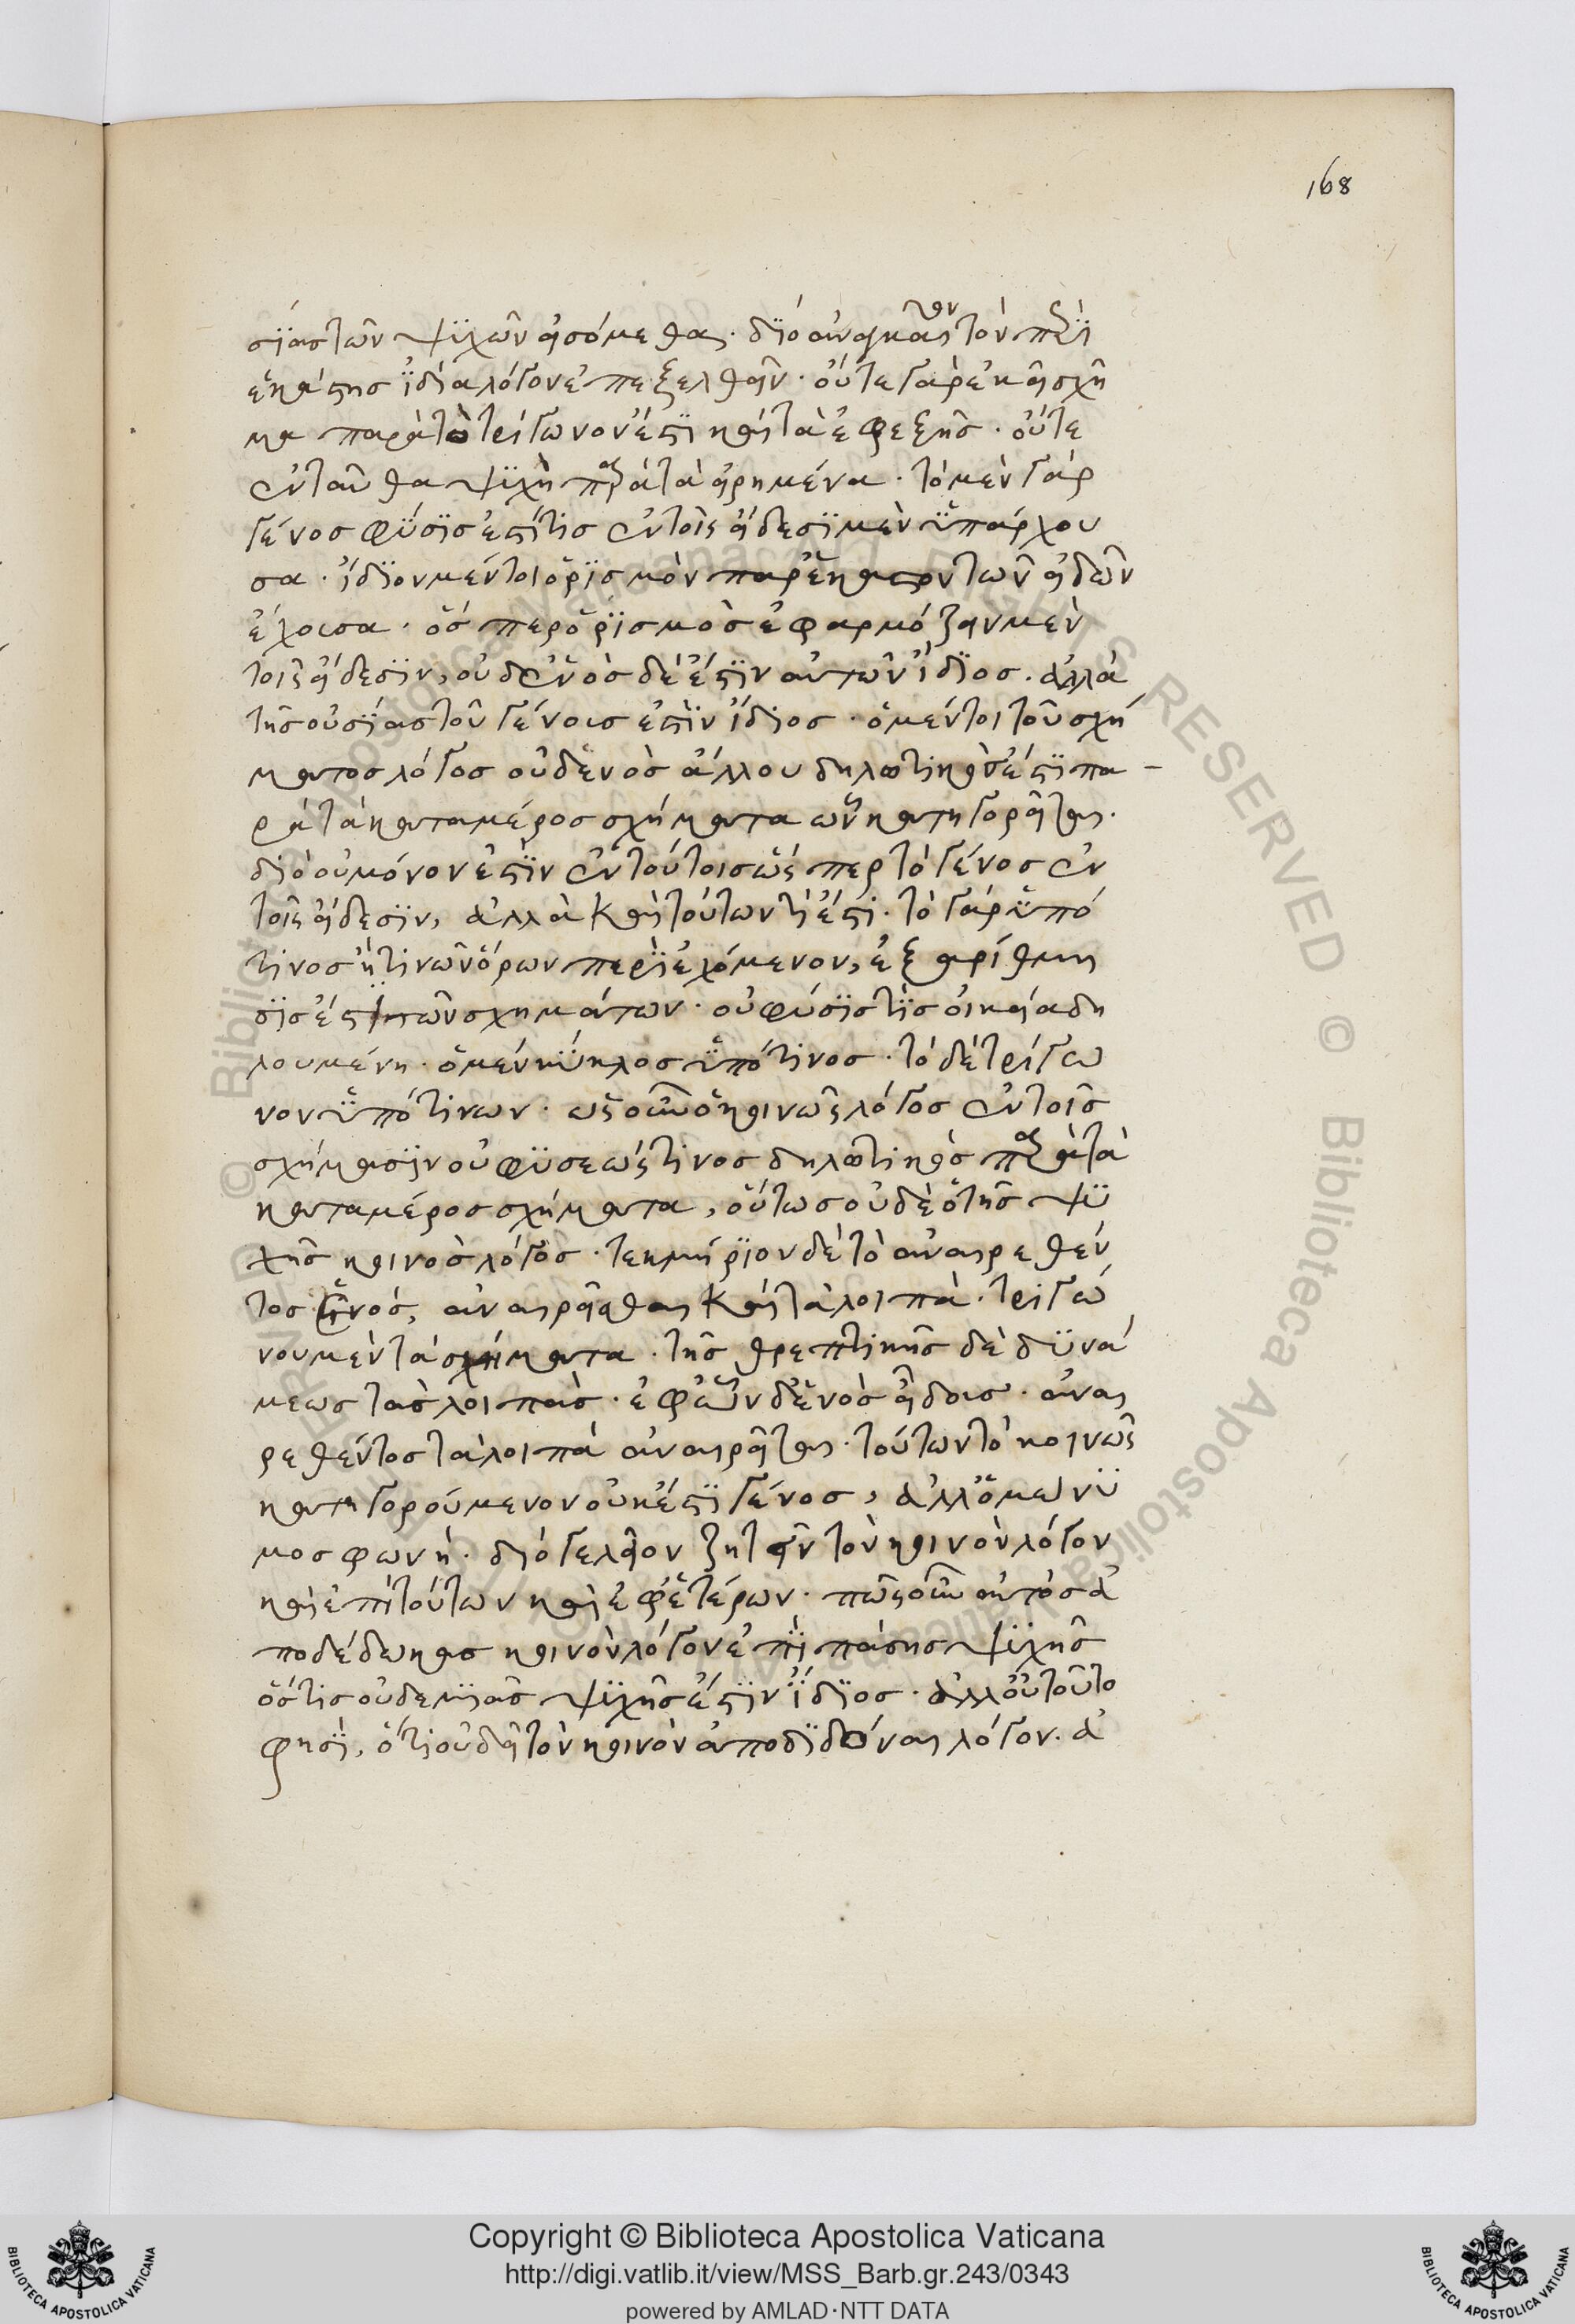 168
σίας τῶν ψυχῶν εἰσόμεθα. διὸ ἀναγκαῖον τὸν περὶ
ἑκάστης ἰδία λόγον ἐπεξελθεῖν. οὔτε γὰρ ἐκεῖ σχῆ
μα παρὰ τὸ τρίγωνον ἐστὶ καὶ τὰ ἐφεξῆς. οὔτε
ἐνταῦθα ψυχὴ παρὰ τὰ εἰρημένα. τὸ μὲν γὰρ
γένος φύσις ἐστί τις ἐν τοῖς εἴδεσι μὲν ὑπάρχου
σα. ἴδιον μέντοι ὁρισμὸν παρ' ἕκαστον τῶν εἰδῶν
ἔχουσα. ὅς περ ὁρισμὸς ἐφαρμόζειν μὲν
τοῖς εἴδεσιν, οὐδενὸς δέ ἐστιν αὐτῶν ἴδιος. ἀλλὰ
τῆς οὐσίας τοῦ γένους ἐστὶν ἴδιος. ὁ μέντοι τοῦ σχή
ματος λόγος οὐδενὸς ἄλλου δηλωτικός ἐστι πα-
ρὰ τὰ κατὰ μέρος σχήματα ὧν κατηγορεῖται.
διὸ οὐ μόνον ἐστὶν ἐν τούτοις ὥσπερ τὸ γένος ἐν
τοῖς εἴδεσιν, ἀλλὰ καὶ τούτων τί ἐστι. τὸ γὰρ ὑπό
τινος ἤ τινων ὅρων περιεχόμενον, ἐξαρίθμη
σίς ἐστι τῶν σχημάτων. οὐ φύσις τις οἰκεία δη
λουμένη. ὁ μὲν κύκλος ὑπό τινος. τὸ δὲ τρίγω
νον ὑπό τινων. ὡς οὖν ὁ κοινῶς λόγος ἐν τοῖς
σχήμασιν οὐ φύσεώς τινος δηλωτικὸς παρὰ τὰ
κατὰ μέρος σχήματα, οὕτως οὐδὲ ὁ τῆς ψυ
χῆς κοινὸς λόγος. τεκμήριον δὲ τὸ ἀναιρεθέν
τος ἑνός, ἀναιρεῖσθαι καὶ τὰ λοιπά. τριγώ
νου μὲν τὰ σχήματα. τῆς θρεπτικῆς δὲ δυνά
μεως τὰς λοιπάς. ἐφ' ὧν δ' ἑνὸς εἴδους. ἀναι
ρεθέντος τὰ λοιπὰ ἀναιρεῖται. τούτων τὸ κοινῶς
κατηγορούμενον οὐκ ἔστι γένος, ἀλλ' ὁμωνύ
μος φωνή. διὸ γελοῖον ζητεῖν τὸν κοινὸν λόγον
καὶ ἐπὶ τούτων καὶ ἐφ' ἑτέρων. πῶς οὖν αὐτὸς ἀ
ποδέδωκας κοινὸν λόγον ἐπὶ πάσης ψυχῆς
ὅστις οὐδεμιᾶς ψυχῆς ἐστιν ἴδιος. ἀλλ' οὐ τοῦτο
φησί, ὅτι οὐ δεῖ τὸν κοινὸν ἀποδιδόναι λόγον. ἀ
Copyright © Biblioteca Apostolica Vaticana
http://digi.vatlib.it/view/MSS_Barb.gr.243/0343
powered by AMLAD·NTT DATA
BIBLIOTECA APOSTOLICA VATICANA
BIBLIOTECA APOSTOLICA VATICANA